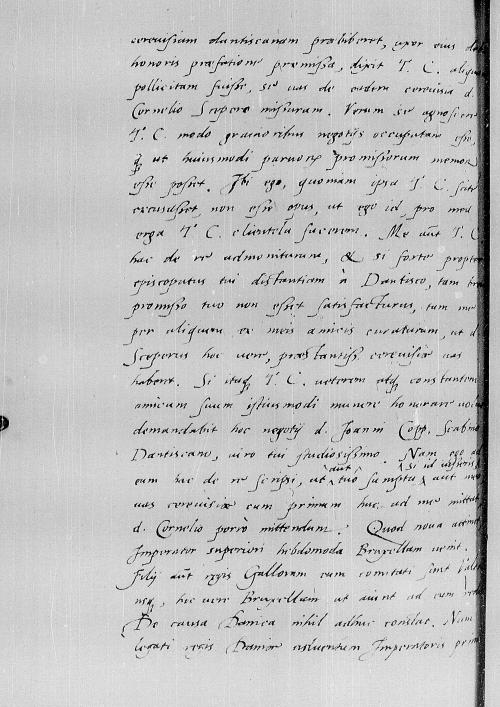 cerevisiam dantiscanam praebiberet, uxor eius
honoris praefatione praemissa, dixit T. C. aliqua
pollicitam fuisse, se vas de eadem cerevisia d.
Cornelio Scepero missuram. Verum se agnoscere
T. C. modo gravioribus negotijs occupatam esse,
ꝙ ut huiusmodi parvorꝫ promissorum memor
esse posset. Ibi ego, quoniam ipsa T. C. satis
excusasset, non esse opus, ut ego id, pro mea
erga T. C. clientela facerem. Me aut T. C.
hac de re admoniturum, & si forte propter
episcopatus tui distantiam à Dantisco, tam
promisso tuo non esset satisfacturus, tum me
per aliquem ex meis amicis curaturum, ut d.
Sceperus hoc vere, praestantiss. cerevisiae vas
haberet. Si itaqꝫ T. C. veterem atqꝫ constantem
amicum suum istiusmodi munere honorare
demandabit hoc negotij d. Joanni Copp. Scabino
Dantiscano, viro tui studiosissimo. Nam ego ad
eum hac de re scripsi, ut aut tuo si id iusseris sumptu aut meo
vas cerevisiae cum primum huc ad me mittat
d. Cornelio porrò mittendum. Quod nova
Imperator superiori hebdomada Bruxellam venit.
Filij aut regis Gallorum cum comitati sunt
usqꝫ, hoc vere Bruxellam ut aiunt ad eum
De causa Danica nihil adhuc constat. Nam
legati regis Daniae adventum Imperatoris